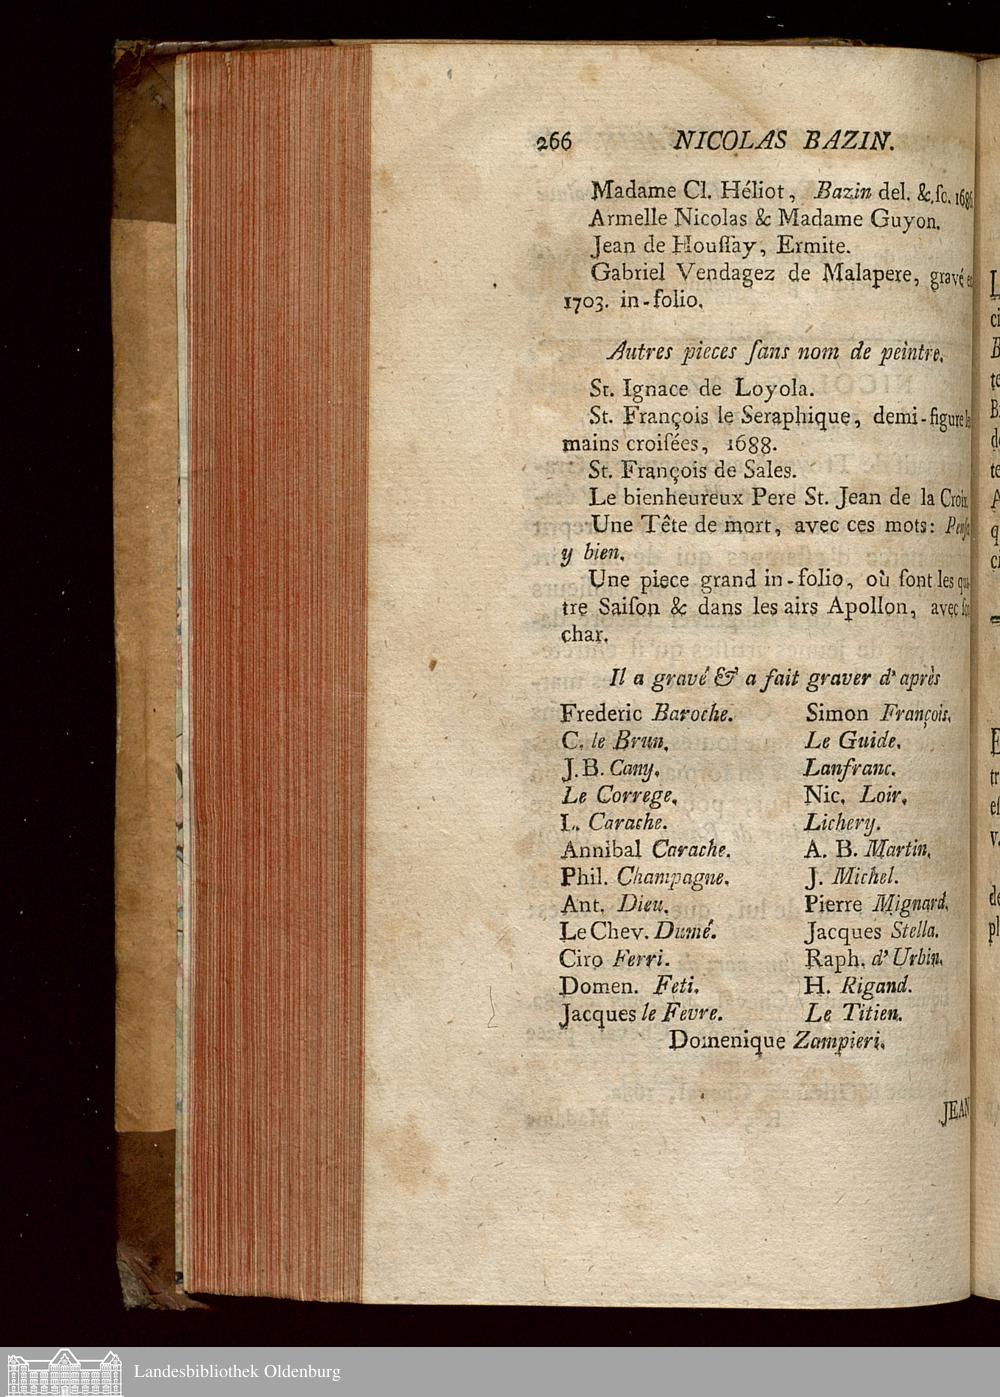 266 NICOLAS BAZIN.
Madame Cl. Héliot, Bazin del. &.ſc. 1686.
Armelle Nicolas & Madame Guyon.
Jean de Houſſay, Ermite.
Gabriel Vendagez de Malapere, gravé en
1703. in-folio.
Autres pieces ſans nom de peintre.
St. Ignace de Loyola.
St. François le Seraphique, demi-figure
mains croiſées, 1688.
St. François de Sales.
Le bienheureux Pere St. Jean de la Croix
Une Tête de mort, avec ces mots:
y bien.
Une piece grand in-folio, où ſont les
tre Saiſon & dans les airs Apollon, avec
char.
Il a gravé & a fait graver d'après
Frederic Baroche.
C. le Brun.
J.B. Cany.
Le Correge.
L. Carache.
Annibal Carache.
Phil. Champagne.
Ant. Dieu.
Le Chev. Dumé.
Ciro Ferri.
Domen. Feti.
Jacques le Fevre.
Simon François.
Le Guide.
Lanfranc.
Nic. Loir.
Lichery.
A. B. Martin.
J. Michel.
Pierre Mignard.
Jacques Stella.
Raph. d'Urbin.
H. Rigand.
Le Titien.
Domenique Zampieri.
JEAN
Landesbibliothek Oldenburg